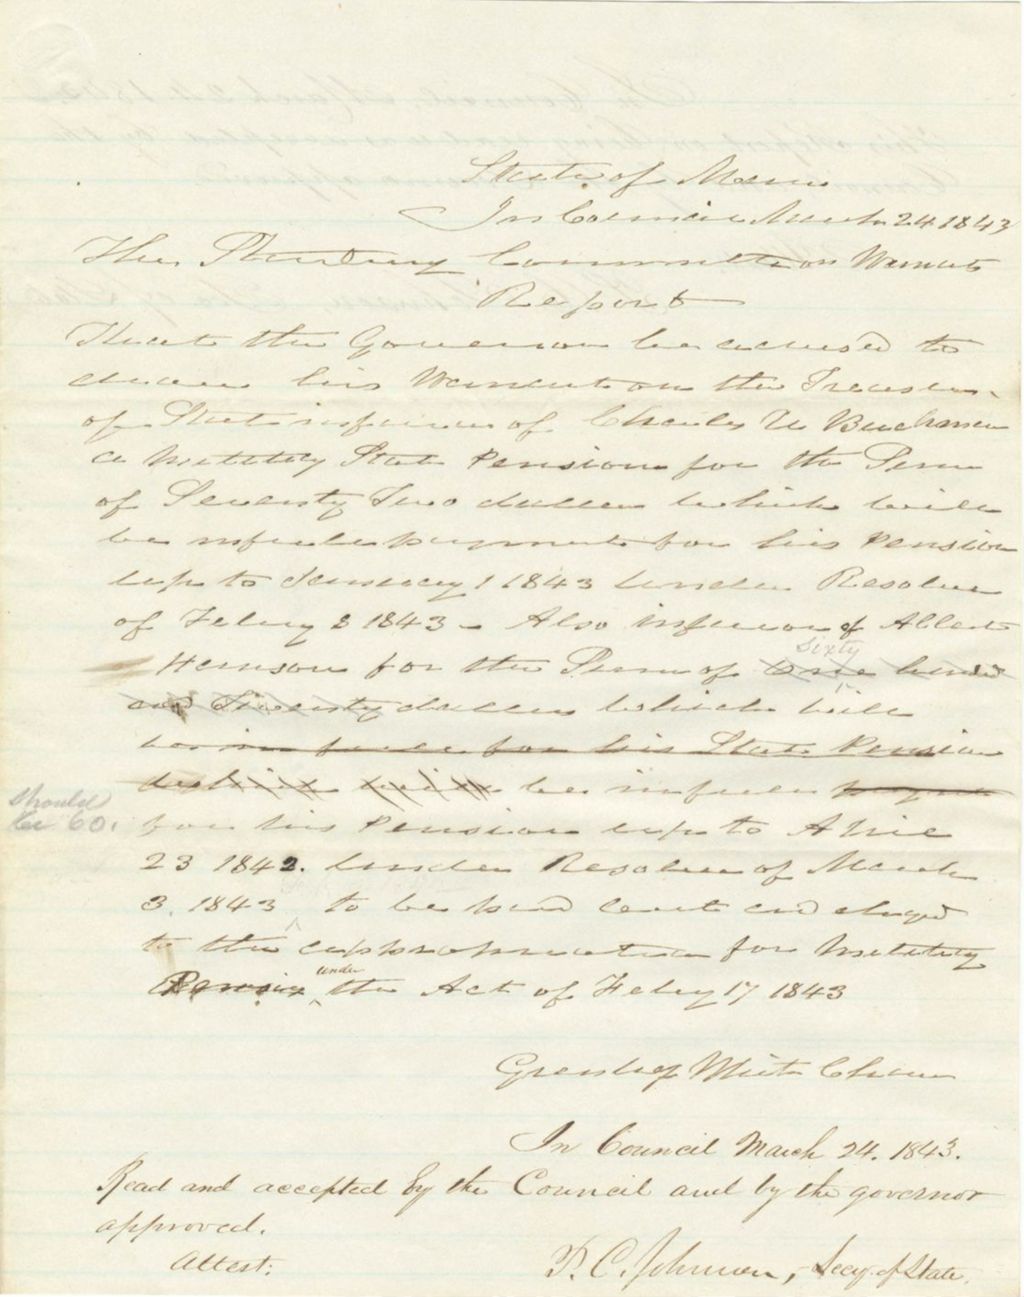 State of Maine
In Council March 24 1843
The Standing Committee on Warrants
Report
That the Governor be advised to
draw his Warrant on the Treasurer
of State in favor of Charles W Buckman
a Military State Pension for the Term
of Seventy Two dollars which will
be in full payment for his Pension
up to January 1 1843 under Resolve
of Feby 8 1843 - Also in favor of Albert
sixty
Harrison for the Term of one hund
and Twenty dollars which will
be in full for his State Pension
which will be in full
should
be 60.
for his Pension up to April
23 1842. under Resolve of March
3. 1843 to be paid out and charged
to the appropriation for Military
Pension under the Act of Feby 17 1843
Greenlief White Chair
In Council March 24. 1843.
Read and accepted by the Council and by the governor
approved.
Attest:
P. C. Johnson, Secy. of State.